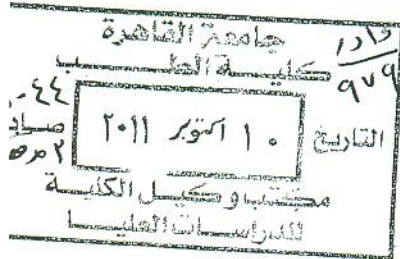 جامعة القاهرة
كلية الطب
وارد
٩٧٩
التاريخ
١٠ اكتوبر ٢٠١١
مكتب وكيل الكلية
للدراسات العليا